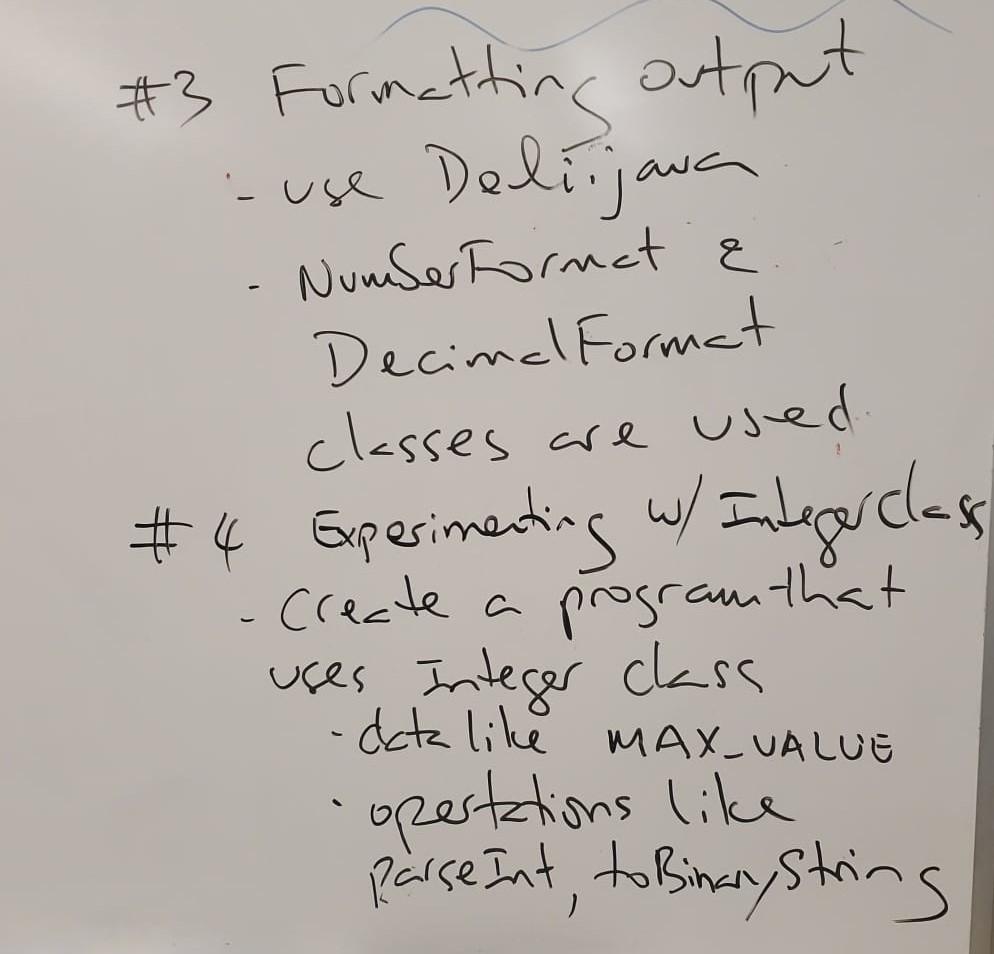 #3 Formatting output
- use Deli.java
- NumberFormat &
DecimalFormat
classes are used
#4 Experimenting w/ Integer class
- Create a program that
uses Integer class
· data like MAX_VALUE
· opertations like
parseInt, toBinaryString